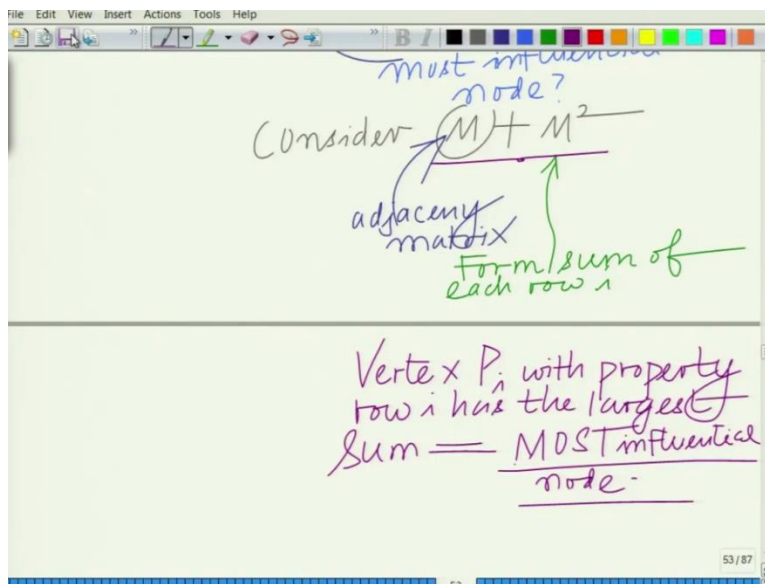 File Edit View Insert Actions Tools Help
B I
most influential
node?
Consider M + M²
adjaceny
matrix
Form sum of
each row i
Vertex Pi with property
row i has the largest
sum = MOST influential
node.
53/87